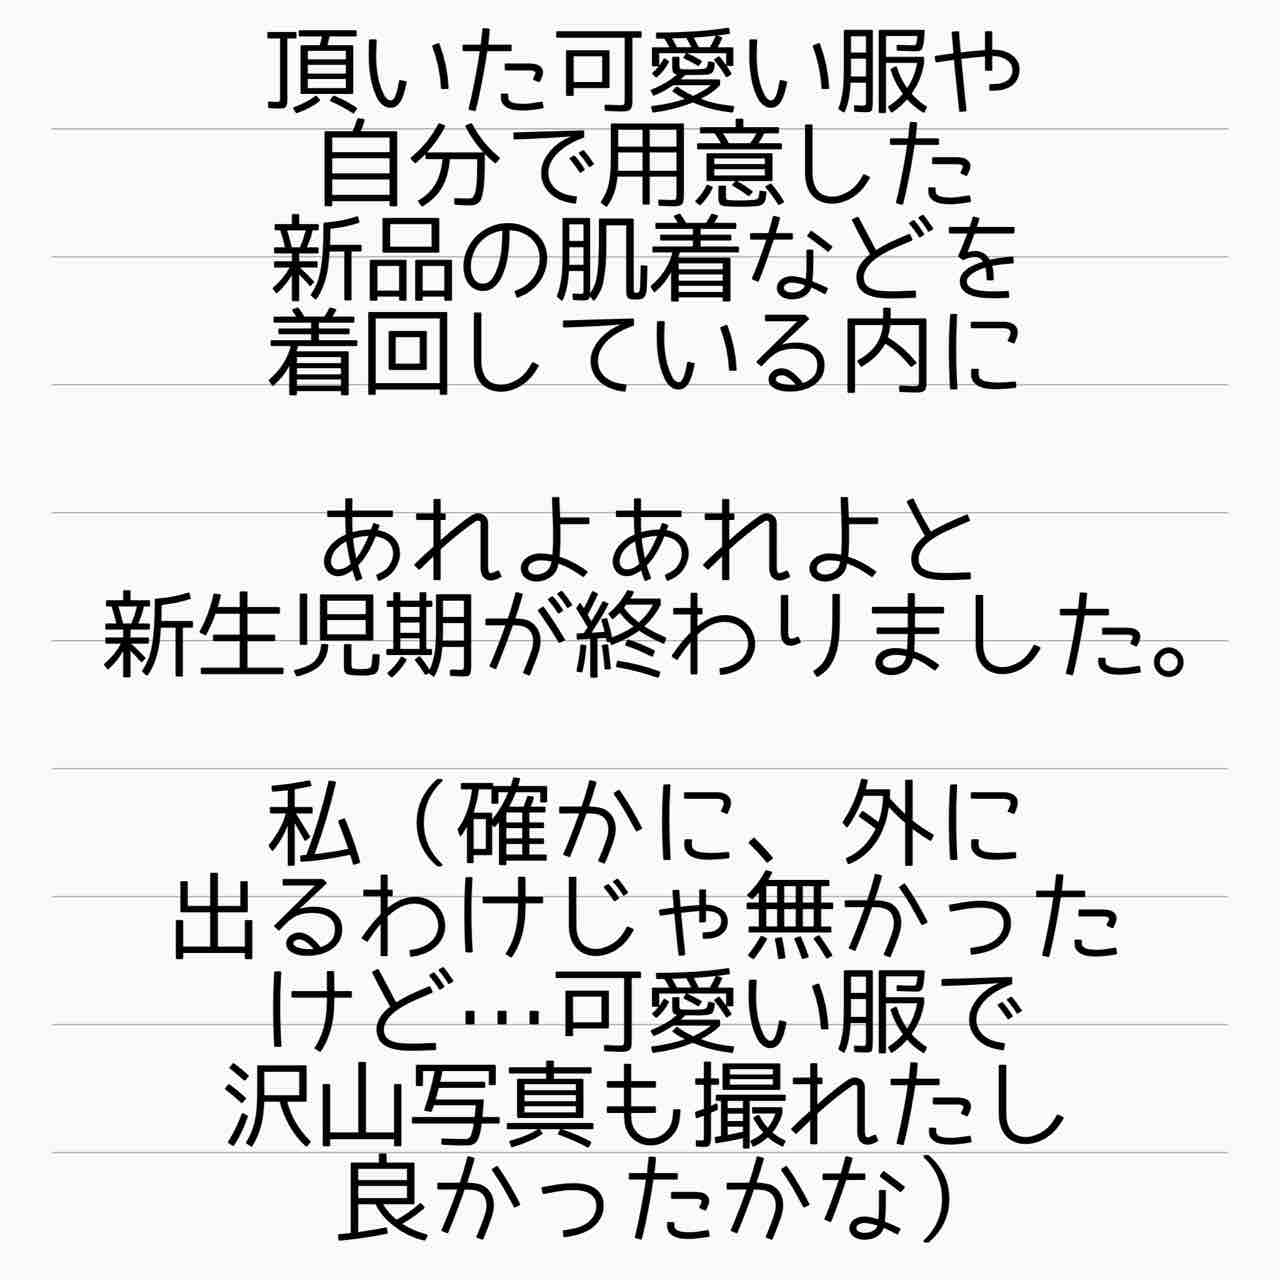 頂いた可愛い服や
自分で用意した
新品の肌着などを
着回している内に
あれよあれよと
新生児期が終わりました。
私（確かに、外に
出るわけじゃ無かった
けど…可愛い服で
沢山写真も撮れたし
良かったかな）